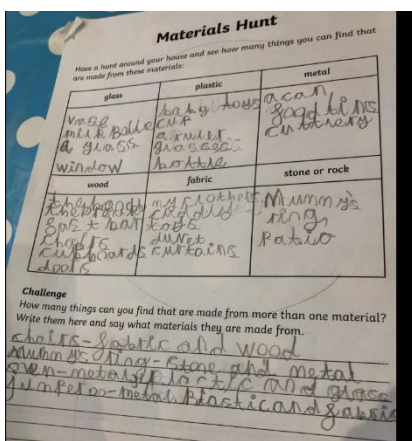 Materials Hunt
Have a hunt around your house and see how many things you can find that
are made from these materials:
glass
plastic
metal
vase
milk Bottle
a glass
window
baby toys
cup
a ruler
glasses
bottle
a can
food tins
cuttlery
wood
fabric
stone or rock
chairs
cupboards
doors
my clothes
cuddly
toys
duvet
curtains
Mummy's
ring
Patio
Challenge
How many things can you find that are made from more than one material?
Write them here and say what materials they are made from.
chairs-fabric and wood
Mummy's ring-Stone and metal
oven-metal and glass
metal Plastic and fabric